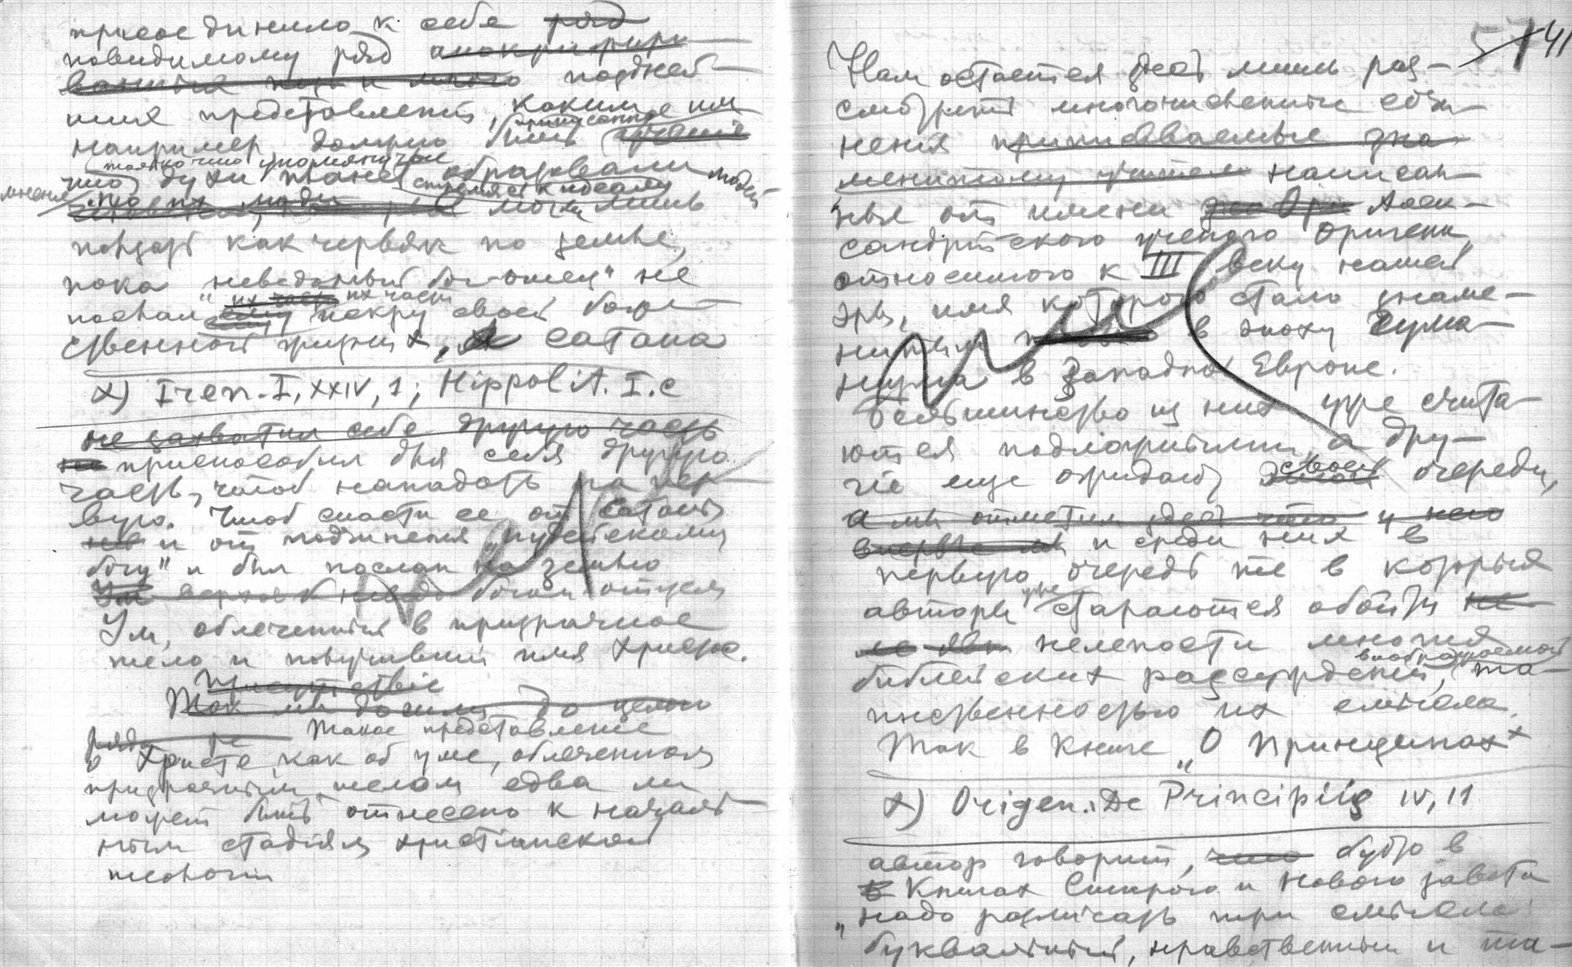 присоединило к себе ряд
повидимому ряд
поздней-
шия представления, каким им
например, должно быть приписанное учение
только что упомянутые
мнение что духи планет образовали людей
стремясь к идеалу
что их люди могли лишь
ползать как червяк по земле,
пока неведомый бог-отец" не
послал их части искру своей боже-
ственной жизни х, а сатана
х) Iren. I, XXIV, 1; Hippolit. I. c
не захватил себе другую часть
не приспособил для себя другую
часть, чтоб нападать на пер-
вую. Чтоб спасти ее от Сатаны
и от подчинения "иудейскому
богу" и был послан на землю
Ум, облеченный в призрачное
тело и получивший имя Христа.
Присутствие
Так мы дошли до целого
ряда Такое представление
о Христе как об уме, облеченном
призрачным телом едва ли
может быть отнесено к началь-
ным стадиям христианской
теологии
41
Нам остается здесь лишь рас-
смотреть многочисленные сочи-
нения приписываемые зна-
менитому учителю написан-
ные от имени Алек-
сандрийского ученого Оригена
относимого к III веку нашей
эры, имя которого стало знаме-
нитым в эпоху Гума-
низма в Западной Европе.
Большинство из них уже счита-
ются подложными, а дру-
гие еще ожидают своей очереди,
а мы отметим здесь что и него
впервые и среди них в
первую очередь те в которых
авторы уже стараются обойти не-
нелепости многих
библейских рассуждений, воображаемой та-
инственностью их смысла.
Так в книге „О Принципах х
х) Origen. De Principiis IV, 11
автор говорит, что будто в
в Книгах Старого и Нового завета
„надо различать три смысла:
буквальный, нравственный и та-